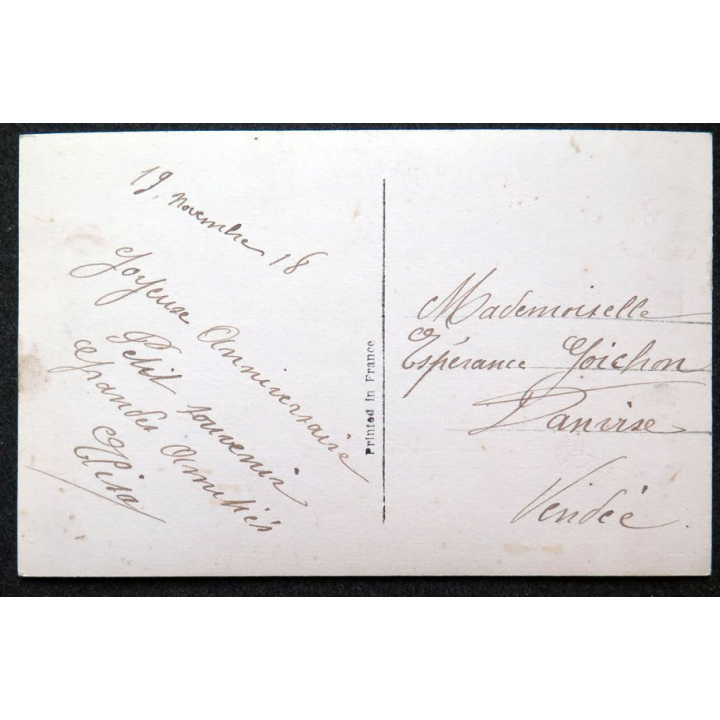 19, novembre 18
Joyeuse Anniversaire
Petit souvenir
Grandes Amitiés
Printed in France
Mademoiselle
Espérance Goichon
Vendée